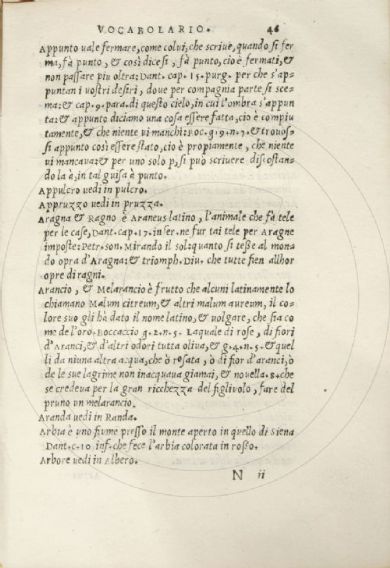 VOCABOLARIO. 46
Appunto uale fermare, come colui, che scriue, quando si fer
ma, fà punto, & così dicesi, fà punto, cio è fermati, & 
non passare piu oltra: Dant. cap. 15. purg. per che s'ap-
puntan i vostri desiri, doue per compagnia parte si sce-
ma: & cap. 9. para. di questo cielo, in cui l'ombra s'appun
ta: & appunto diciamo una cosa essere fatta, cio è compiu
tamente, & che niente vi manchi: Boc. g. 9. n. 7. & trouoss
si appunto così essere stato, cio è propiamente, che niente
vi mancaua: & per uno solo p, si può scriuere discostan
do la à, in tal guisa è punto.
Appulcro uedi in pulcro.
Appruzzo uedi in pruzza.
Aragna & Ragno è Araneus latino, l'animale che fà tele
per le case, Dant. cap. 17. infer. ne fur tai tele per Aragne
imposte: Petr. son. Mirando il sol: quanto si tesse al mon
do opra d'Aragna: & triomph. Diu. che tutte fien allhor
opre di ragni.
Arancio, & Melarancio è frutto che alcuni latinamente lo
chiamano Malum citreum, & altri malum aureum, il co
lore suo gli hà dato il nome latino, & volgare, che sia co
me de l'oro. Boccaccio g. 2. n. 5. Laquale di rose, di fiori
d'Aranci, & d'altri odori tutta oliua, & g. 4. n. 5. & quel
li da niuna altra acqua, che ò rosata, ò di fior d'aranci, ò
de le sue lagrime non inacquaua giamai, & nouella. 8. che
se credeua per la gran ricchezza del figliuolo, fare del
pruno un melarancio.
Aranda uedi in Randa.
Arbia è uno fiume presso il monte aperto in quello di Siena
Dant. c. 10 inf. che fece l'arbia colorata in rosso.
Arbore uedi in Albero.
N ii